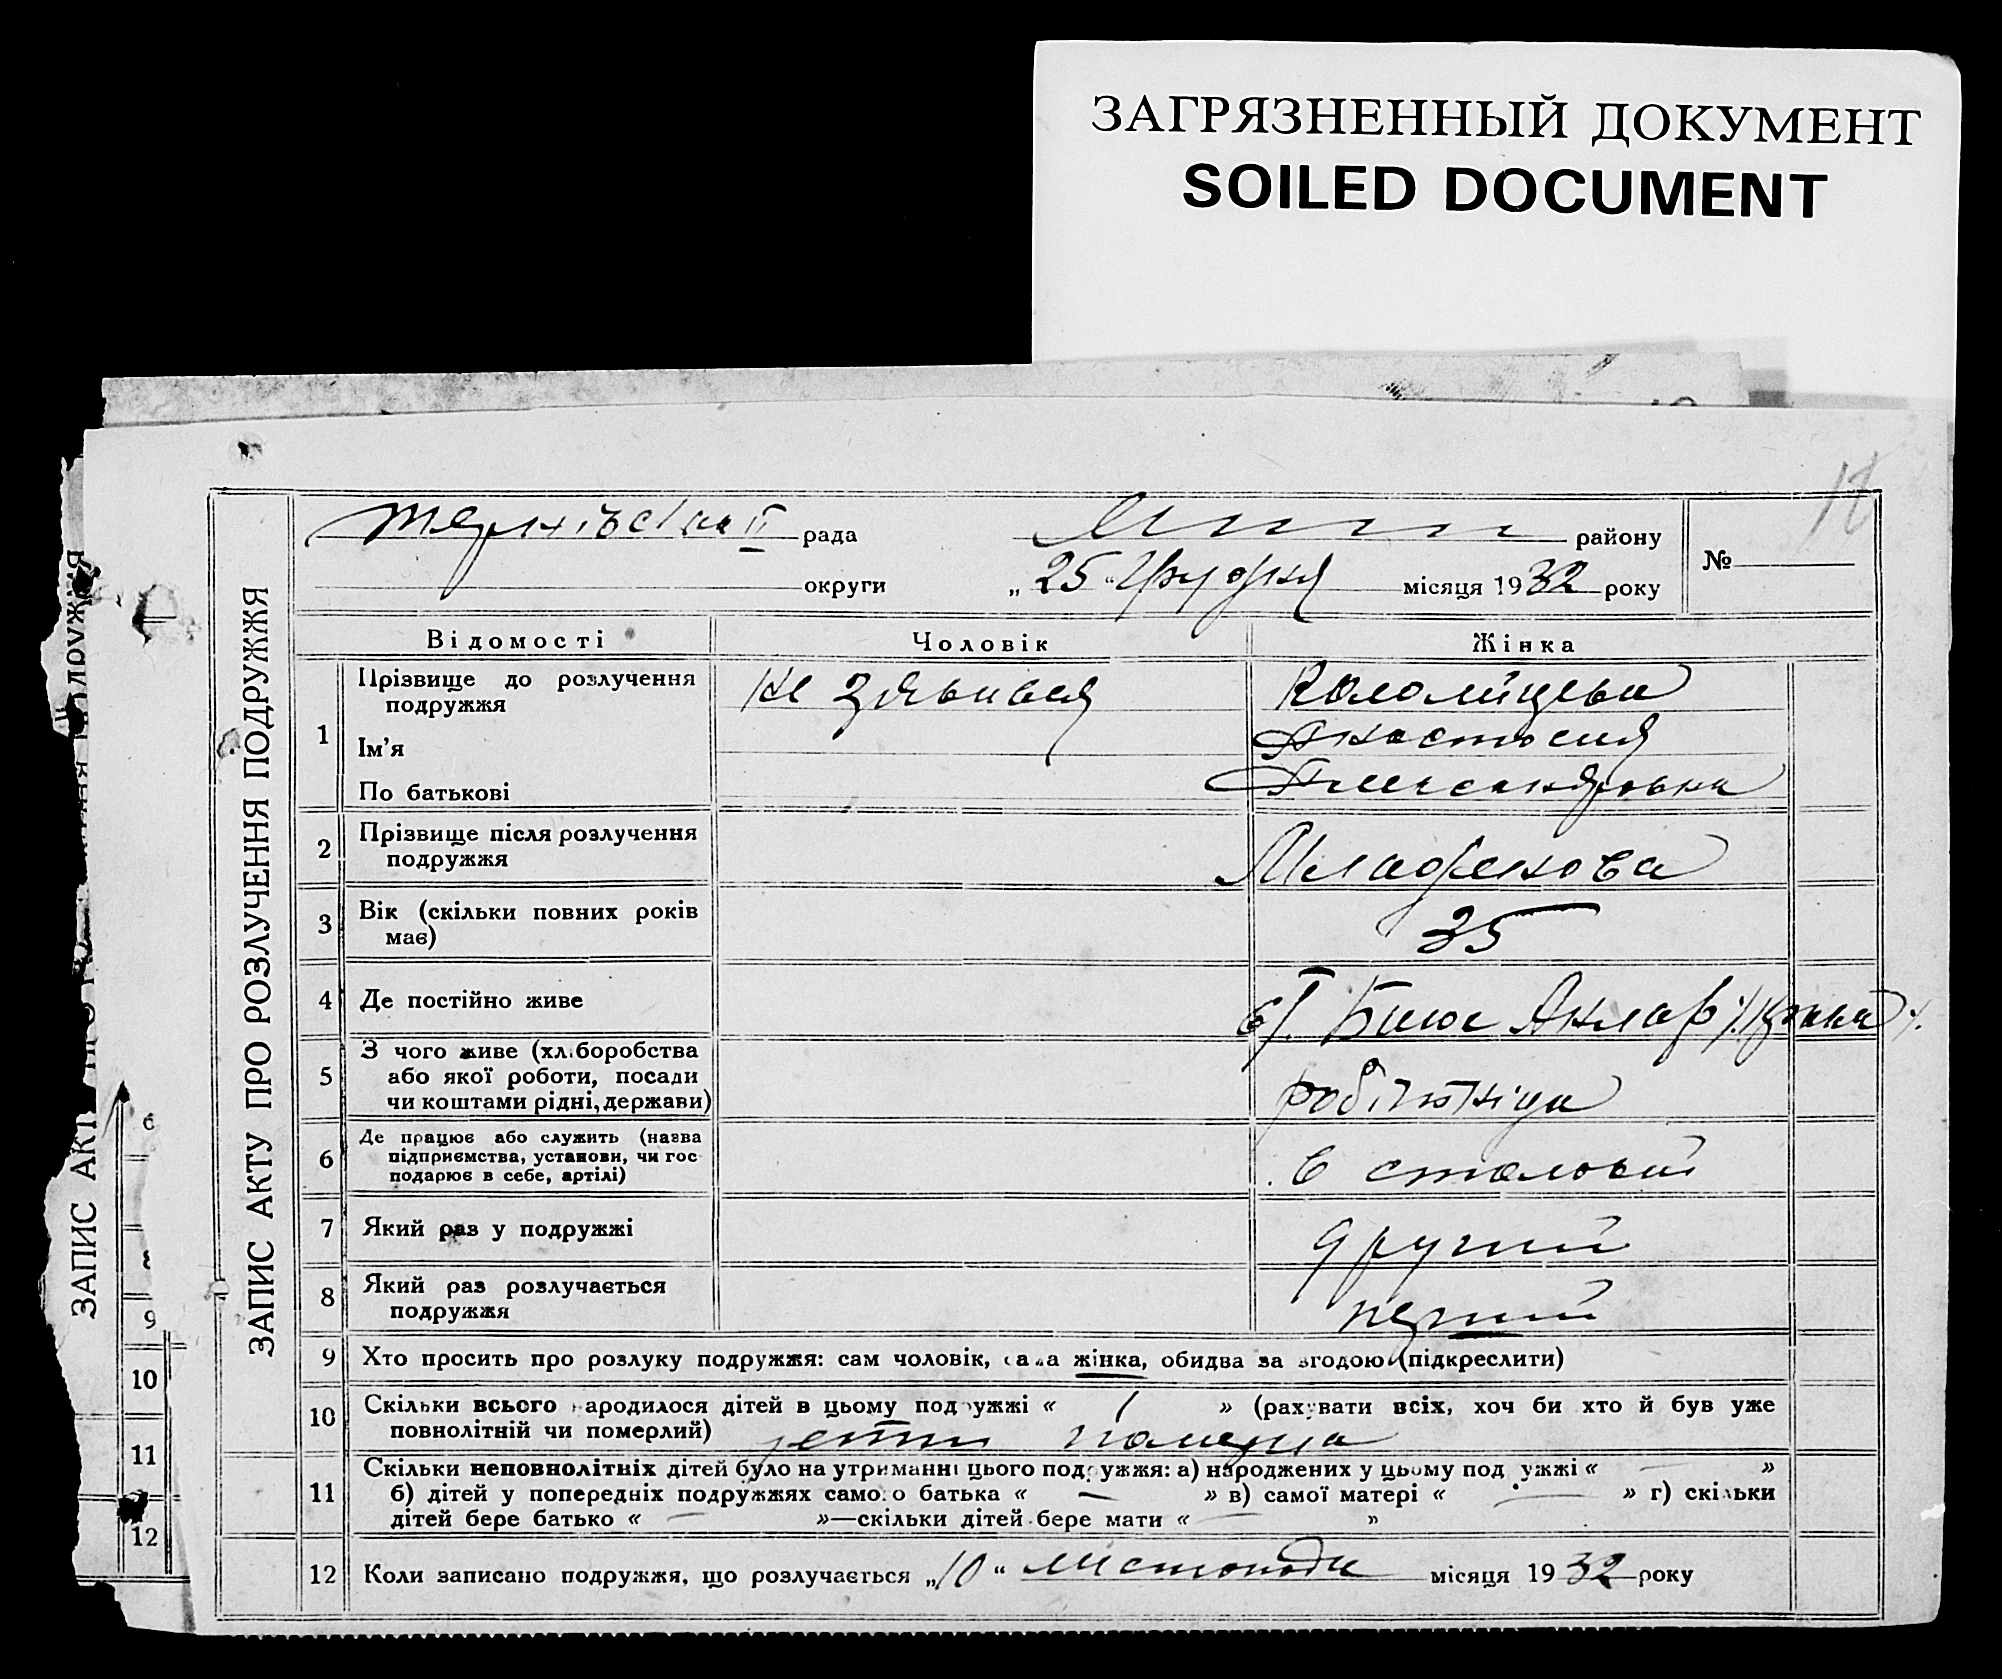 ЗАГРЯЗНЕННЫЙ ДОКУМЕНТ
SOILED DOCUMENT
ЗАПИС АКТУ ПРО РОЗЛУЧЕННЯ ПОДРУЖЖЯ
рада району №
округи „25“ Грудня місяця 1932 року
Відомості Чоловік Жінка
1 Прізвище до розлучення подружжя Не зявився Коломійцева
Ім'я Анастасия
По батькові Александровна
2 Прізвище після розлучення
подружжя Младенова
3 Вік (скільки повних років
має) 35
4 Де постійно живе
5 З чого живе (хліборобства
або якої роботи, посади
чи коштами рідні, держави) робітніца
6 Де працює або служить (назва
підприємства, установи, чи гос
подарює в себе, артілі) в столовій
7 Який раз у подружжі другий
8 Який раз розлучається
подружжя перший
9 Хто просить про розлуку подружжя: сам чоловік, сама жінка, обидва за згодою (підкреслити)
10 Скільки всього народилося дітей в цьому подружжі « 1 » (рахувати всіх, хоч би хто й був уже
повнолітній чи померлий)
11 Скільки неповнолітніх дітей було на утриманні цього подружжя: а) народжених у цьому подружжі « — »
б) дітей у попередніх подружжях самого батька « — » в) самої матері « — » г) скільки
дітей бере батько « — »—скільки дітей бере мати « — »
12 Коли записано подружжя, що розлучається „10“ листопада місяця 1932 року
ЗАПИС АКТ
9
10
11
12